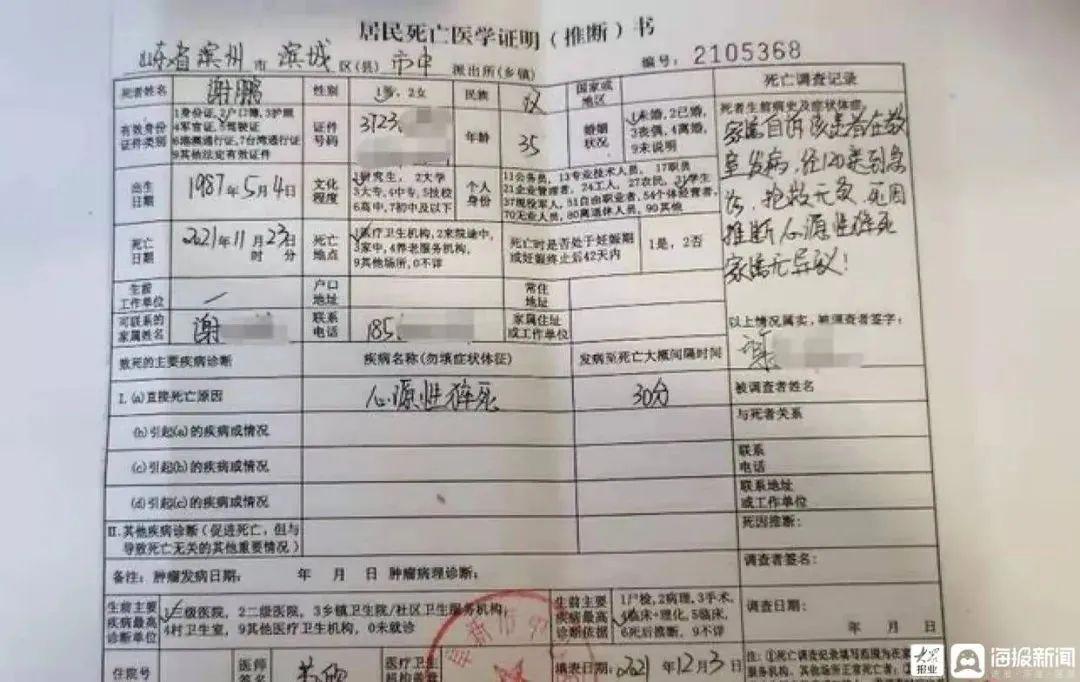 居民死亡医学证明(推断)书
山东省滨州市 滨城 区(县) 市中 派出所(乡镇)
编号: 2105368
死者姓名 谢鹏 性别 1男, 2女 民族 汉 国家或地区
有效身份证件类别 1身份证, 2户口簿, 3护照
4军官证, 5驾驶证
6港澳通行证, 7台湾通行证
9其他法定有效证件
证件号码 3723
年龄 35
婚姻状况 1未婚, 2已婚,
3丧偶, 4离婚,
9未说明
出生日期 1987年5月4日
文化程度 1研究生, 2大学
3大专, 4中专, 5技校
6高中, 7初中及以下
个人身份 11公务员, 13专业技术人员, 17职员
21企业管理者, 24工人, 27农民, 31学生
37现役军人, 51自由职业者, 54个体经营者,
70无业人员, 80离退休人员, 90其他
死亡日期 2021年11月23日
时 分
死亡地点 1医疗卫生机构, 2来院途中,
3家中, 4养老服务机构,
9其他场所, 0不详
死亡时是否处于妊娠期或妊娠终止后42天内 1是, 2否
生前工作单位 户口地址 常住地址
可联系的家属姓名 谢 联系电话 185 家属住址或工作单位
致死的主要疾病诊断 疾病名称(勿填症状体征) 发病至死亡大概间隔时间
I.(a)直接死亡原因 心源性猝死 30分
(b)引起(a)的疾病或情况
(c)引起(b)的疾病或情况
(d)引起(c)的疾病或情况
II.其他疾病诊断(促进死亡,但与
导致死亡无关的其他重要情况)
备注:肿瘤发病日期: 年 月 日 肿瘤病理诊断:
生前主要疾病最高诊断单位 1三级医院, 2二级医院, 3乡镇卫生院/社区卫生服务机构,
4村卫生室, 9其他医疗卫生机构, 0未就诊
生前主要疾病最高诊断依据 1尸检, 2病理, 3手术,
4临床+理化, 5临床,
6死后推断, 9不详
住院号 医师签名 医疗卫生机构盖章 填表日期: 2021年12月3日
死亡调查记录
死者生前病史及症状体征:
家属自诉该患者在教
室发病,经120送到急
诊,抢救无效,死因
推断心源性猝死
家属无异议!
以上情况属实,被调查者签字:
被调查者姓名
与死者关系
联系电话
联系地址或工作单位
死因推断:
调查者签名:
调查日期:
年 月 日
注:①死亡调查记录填写范围为在家
服务机构、其他场所正常死亡者;②
大众报业 海报新闻